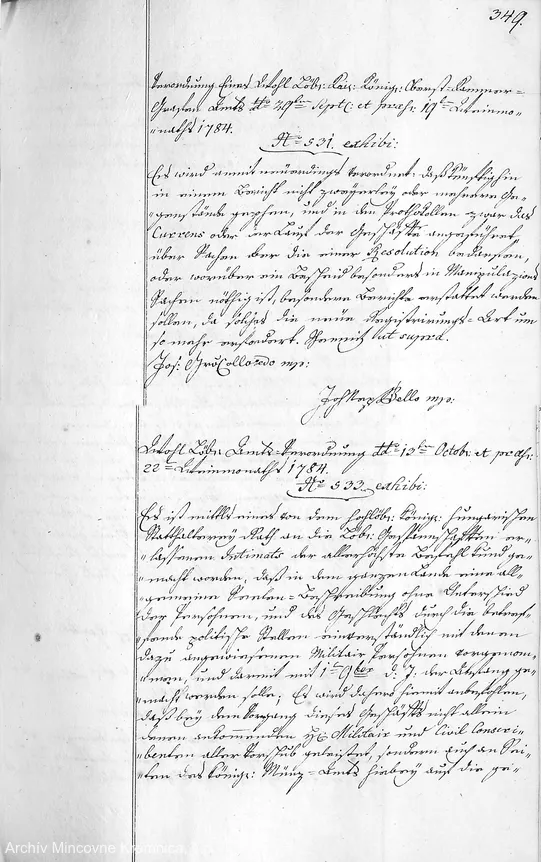 349.
Verordnung Eines Wohl Löbl: Kais: Königl: Oberst=Kammer=
Grafen Amts dto 29ten Septr: et praes: 19ten Weinmo=
=naths 1784.
No 531. exhibi:
Es wird anmit neüerdings verordnet: daß künftighin
in einem Bericht nicht zweyerley oder mehrere Ge=
=genstände geschehen, und in den Prothokollen zwar das
Currens oder der Lauf der Geschäfte angeführet,
über Sachen aber die einer Resolution bedürfen,
oder worüber ein Bescheid besonders in Manipulations
Sachen nöthig ist, besondere Berichte erstattet werden
sollen, da solches die neüe Registrirungs=Art um
so mehr erfordert. Schemnitz ut supra.
Jos: Gr. Colloredo mp:
Joh Nep Bello mp:
Wohl Löbl: Amts=Verordnung dto 13ten Octob: et praes:
22ten Weinmonaths 1784.
No 533. exhibi:
Es ist mittls eines von dem hochlöbl: Königl: hungarischen
Statthalterey Rath an die Löbl: Gespannschaften er=
=lassenen Intimats der allerhöchste Befehl kund ge=
=macht worden, daß in dem ganzen Lande eine all=
=gemeine Seelen=Beschreibung ohne Unterschied
der Persohnen, und des Geschlechts durch die betref=
=fende politische Stellen einverständlich mit denen
dazu angewiesenen Militair Persohnen vorgenom=
=men, und damit mit 1ten 9ber d. J. der Anfang ge=
=macht werden solle; Es wird dahero hiemit anbefohlen,
daß bey dem Vorgang dieses Geschäfts nicht allein
denen ankomenden Militair und Civil Conscri=
=benten aller Vorschub geleistet, sondern auch an Sei=
=ten des Königl: Münz=Amts hiebey auf die ge=
Archív Mincovne Kremnica,